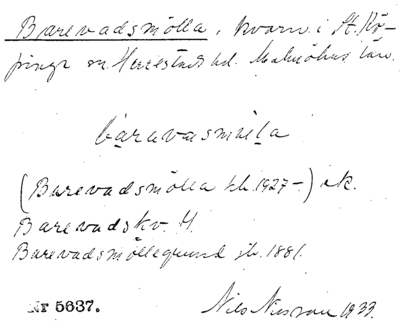 Barevadsmölla, kvarn i St. Kö-
pinge sn Herrestads hd. Malmöhus län.
baravasmöla
(Barevadsmölla kb. 1927-) ek.
Barevadskv. H.
Barevadsmöllegrund jb. 1881.
Nr 5637.
Nils Nilsson 1933.